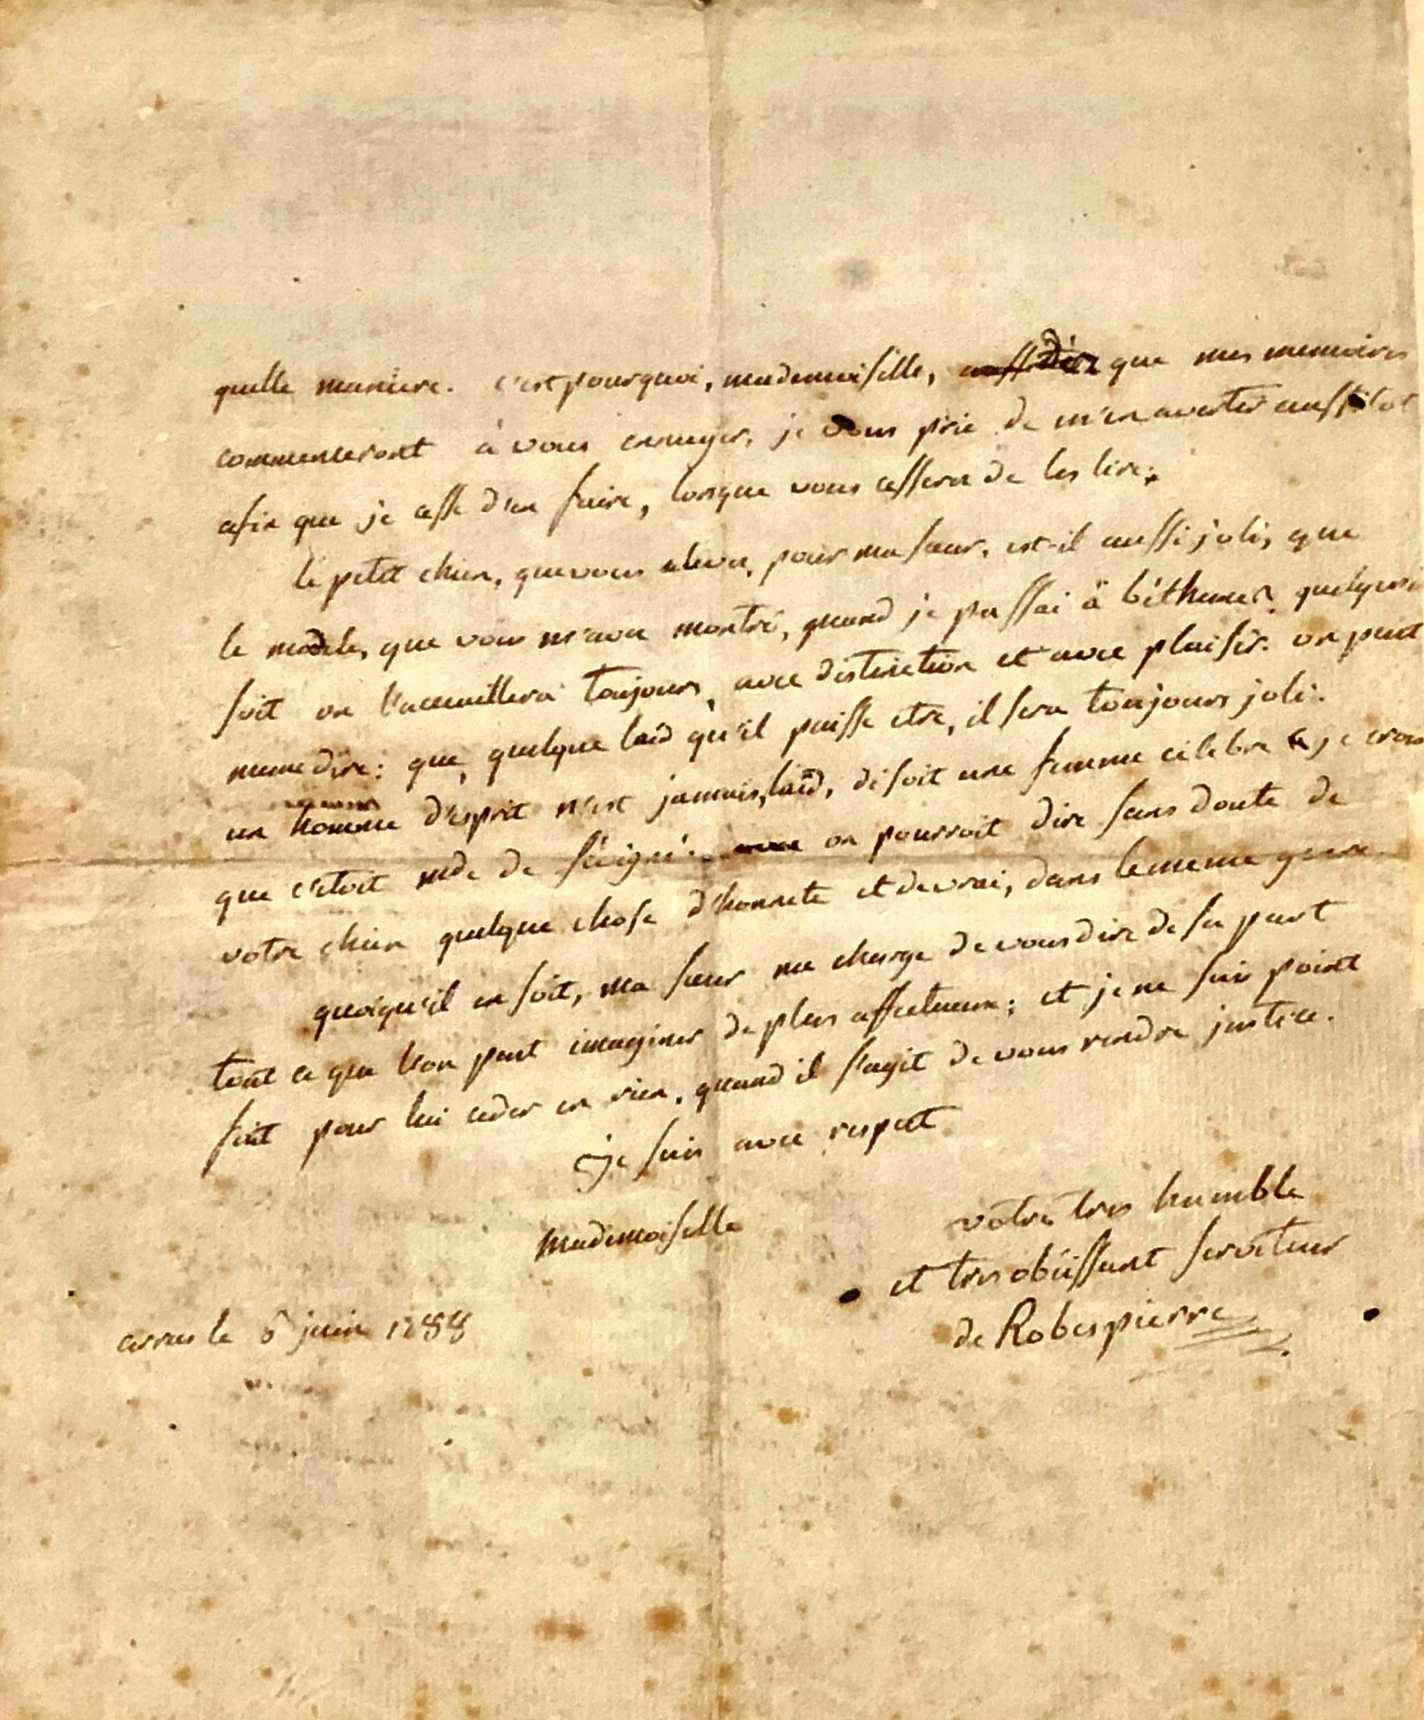 quelle maniere. c'est pourquoi, mademoiselle, dès que mes memoires
commenceront à vous ennuyer, je vous prie de m'en avertir aussitot
afin que je cesse d'en faire, lorsque vous cesserez de les lire.
le petit chien, que vous elevez, pour ma sœur, est-il aussi joli, que
le modele, que vous m'avez montré, quand je passai à béthune?
soit on l'accueillera toujours, avec distinction et avec plaisir. on peut
meme dire: que, quelque laid qu'il puisse etre, il sera toujours joli.
un homme d'esprit n'est jamais, laid, disoit une femme célebre je crois
que c'étoit mde de sévigné. on pourroit dire sans doute de
votre chien quelque chose d'honnete et de vrai, dans le meme genre
quoiqu'il en soit, ma sœur me charge de vous dire de sa part
tout ce que l'on peut imaginer de plus affectueux; et je ne suis point
fait pour lui ceder en rien, quand il s'agit de vous rendre justice.
je suis avec respect
mademoiselle
votre tres humble
et tres obéissant serviteur
de Robespierre
arras le 6 juin 1788